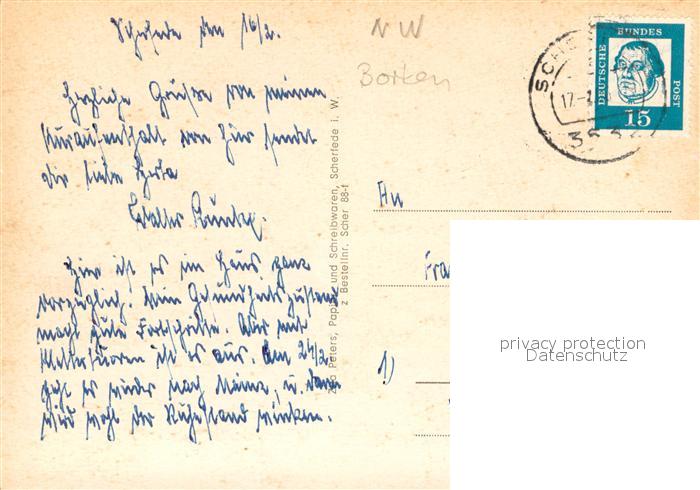 Scherfede den 16/2.
Herzliche Grüße von meinem
Kuraufenthalt von hier sendet
dir liebe
Walter
Hier ist es im Haus ganz
vorzüglich. Mein Gesundheitszustand
macht gute Fortschritte. Aber mit
Klettertouren ist es aus. Am 24/2.
geht es wieder nach Mainz, u. dann
wird wohl der Ruhestand winken.
NW
Borken
DEUTSCHE BUNDES POST
15
SCHE
17.-
An
Fra
1)
Peters, Papier und Schreibwaren, Scherfede i. W.
z Bestellnr. Scher 88-f
privacy protection
Datenschutz